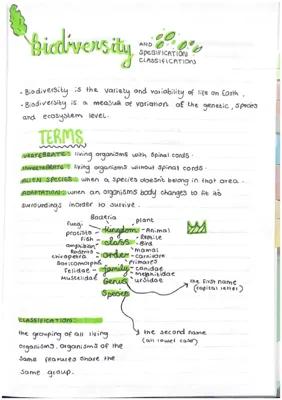 Biodiversity AND SPECIFICATION CLASSIFICATIONS
- Biodiversity is the variety and variability of life on Earth.
- Biodiversity is a measure of variation of the genetic, species
and ecosystem level.
TERMS
VERTEBRATE living organisms with spinal cords.
INVERTEBRATE living organisms without spinal cords.
ALIEN SPECIES when a species doesnt belong in that area.
ADAPTATION when an organisms body changes to fit its
surroundings inorder to survive.
Bacteria plant
fungi Kingdom - Animal
protists Reptile
fish class - Bird
amphibian mamal
order carnivore
chiroptera primates
family canidae
Felidae Mephitidae
Mustelidae Genus ursidae
Species
the first name
(capital letter)
the second name
(all lower case)
CLASSIFICATION:
the grouping of all living
organisms. Organisms of the
same features share the
same group.